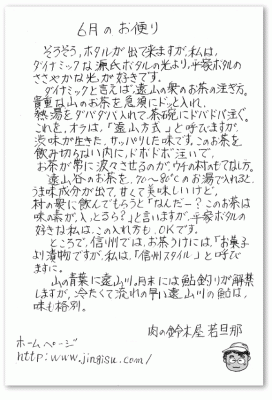 6月のお便り
そろそろ、ホタルが出て来ますが、私は、
ダイナミックな源氏ホタルの光より、平家ホタルの
ささやかな光が好きです。
ダイナミックと言えば、遠山の衆のお茶の注ぎ方。
貴重な山のお茶を急須にドッと入れ、
熱湯をダバダバ入れて、茶碗にドバドバ注ぐ。
これを、オラは、「遠山方式」と呼びますが、
渋味が生きた、サッパリした味です。このお茶を
飲み切らない内に、ドボドボ注いで、
お茶が常に波々させるのが、ウチの村のもてなし方。
遠山谷のお茶を、70〜80℃のお湯で入れると、
うま味成分が出て、甘くて美味しいけど、
村の衆に飲んでもらうと「なんだー？このお茶は
味の素が、入っとるら？」と言いますが、平家ホタルの
好きな私は、この入れ方も、OKです。
ところで、信州では、お茶うけには、「お菓子
より漬物」ですが、私は、「信州スタイル」と呼び
ますに。
山の青葉に遠山川。月末には鮎釣りが解禁
しますが、冷たくて流れの早い遠山川の鮎は、
味も格別。
肉の鈴木屋 若旦那
ホームページ
http://www.jingisu.com/